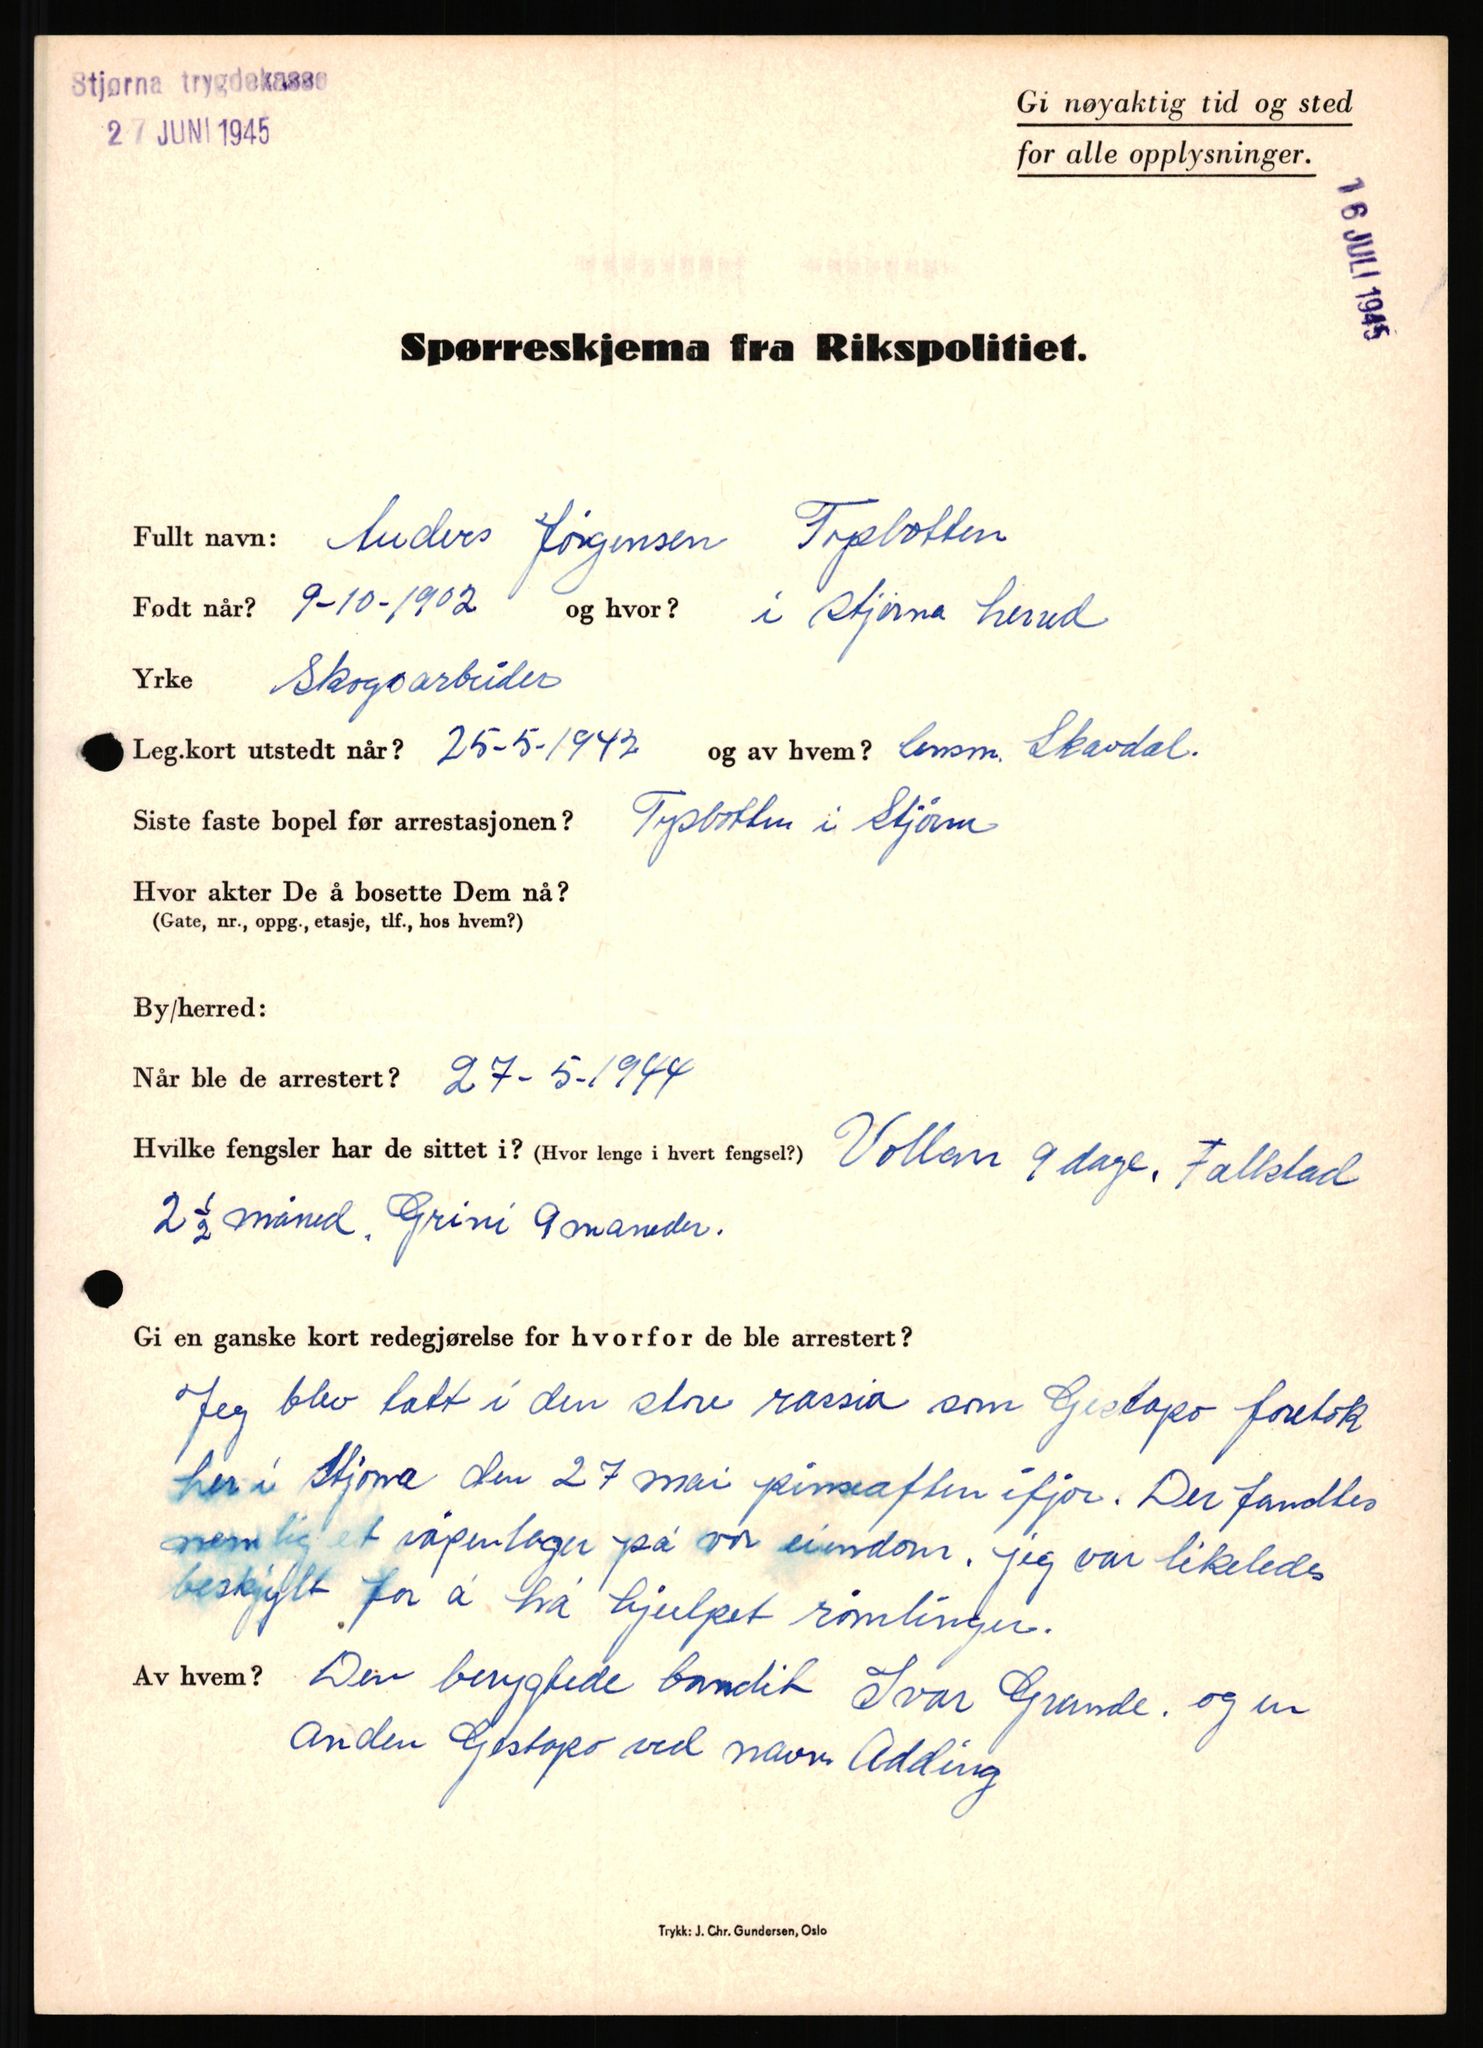 Stjørna trygdekasse
27 JUNI 1945
Gi nøyaktig tid og sted
for alle opplysninger.
16 JULI 1945
Spørreskjema fra Rikspolitiet.
Fullt navn: Anders Jørgensen Trysbotten
Født når? 9-10-1902 og hvor? i Stjørna herred
Yrke Skogsarbeider
Leg.kort utstedt når? 25-5-1942 og av hvem? lensm. Skavdal.
Siste faste bopel før arrestasjonen? Trysbotten i Stjørna
Hvor akter De å bosette Dem nå?
(Gate, nr., oppg., etasje, tlf., hos hvem?)
By/herred:
Når ble de arrestert? 27-5-1944
Hvilke fengsler har de sittet i? (Hvor lenge i hvert fengsel?) Vollan 9 dage. Falkstad
2½ måned. Grini 9 maneder.
Gi en ganske kort redegjørelse for hvorfor de ble arrestert?
Jeg blev tatt i den store rassia som Gestapo foretok
her i Stjørna den 27 mai pinseaften ifjor. Der fandtes
nemlig et våpenlager på vor eiendom. jeg var likeledes
beskyldt for å ha hjulpet rømlinger.
Av hvem? Den berygtede bandit Ivar Grande. og en
anden Gestapo ved navn Adding
Trykk: J. Chr. Gundersen, Oslo